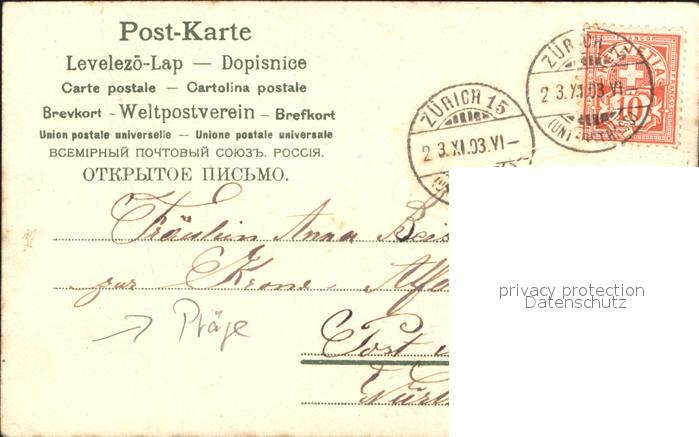 Post-Karte
Levelezõ-Lap — Dopisnice
Carte postale — Cartolina postale
Brevkort - Weltpostverein - Brefkort
Union postale universelle — Unione postale universale
ВСЕМІРНЫЙ ПОЧТОВЫЙ СОЮЗЪ. РОССІЯ.
ОТКРЫТОЕ ПИСЬМО.
ZÜRICH 15
2 3.XI.03.VI—
ZÜRICH
2 3.XI.03.VI
HELVETIA
10
Fräulein Anna
zur Krone
Post
Präge
privacy protection
Datenschutz